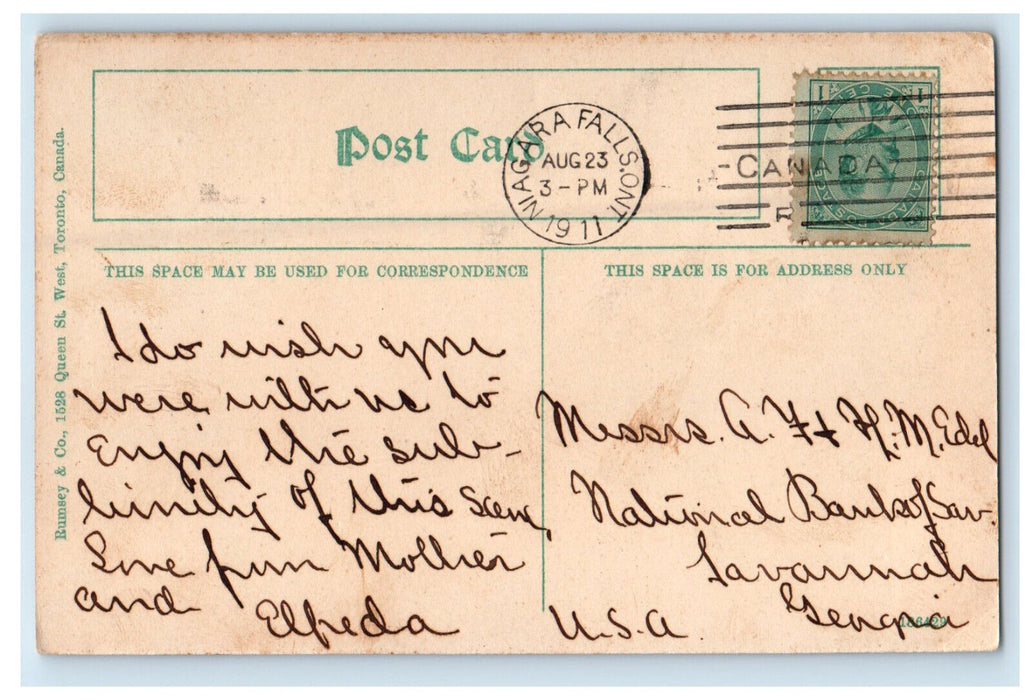 Post Card
NIAGARA FALLS. ONT
AUG 23
3 - PM
1911
CANADA
THIS SPACE MAY BE USED FOR CORRESPONDENCE
THIS SPACE IS FOR ADDRESS ONLY
Rumsey & Co., 1528 Queen St. West, Toronto, Canada.
I do wish you
were with us to
enjoy the sub-
limity of this scene
Love from Mother
and Elfreda
Messrs. A. F + H. M. Edel
National Bank of Sav.
Savannah
Georgia
U.S.A